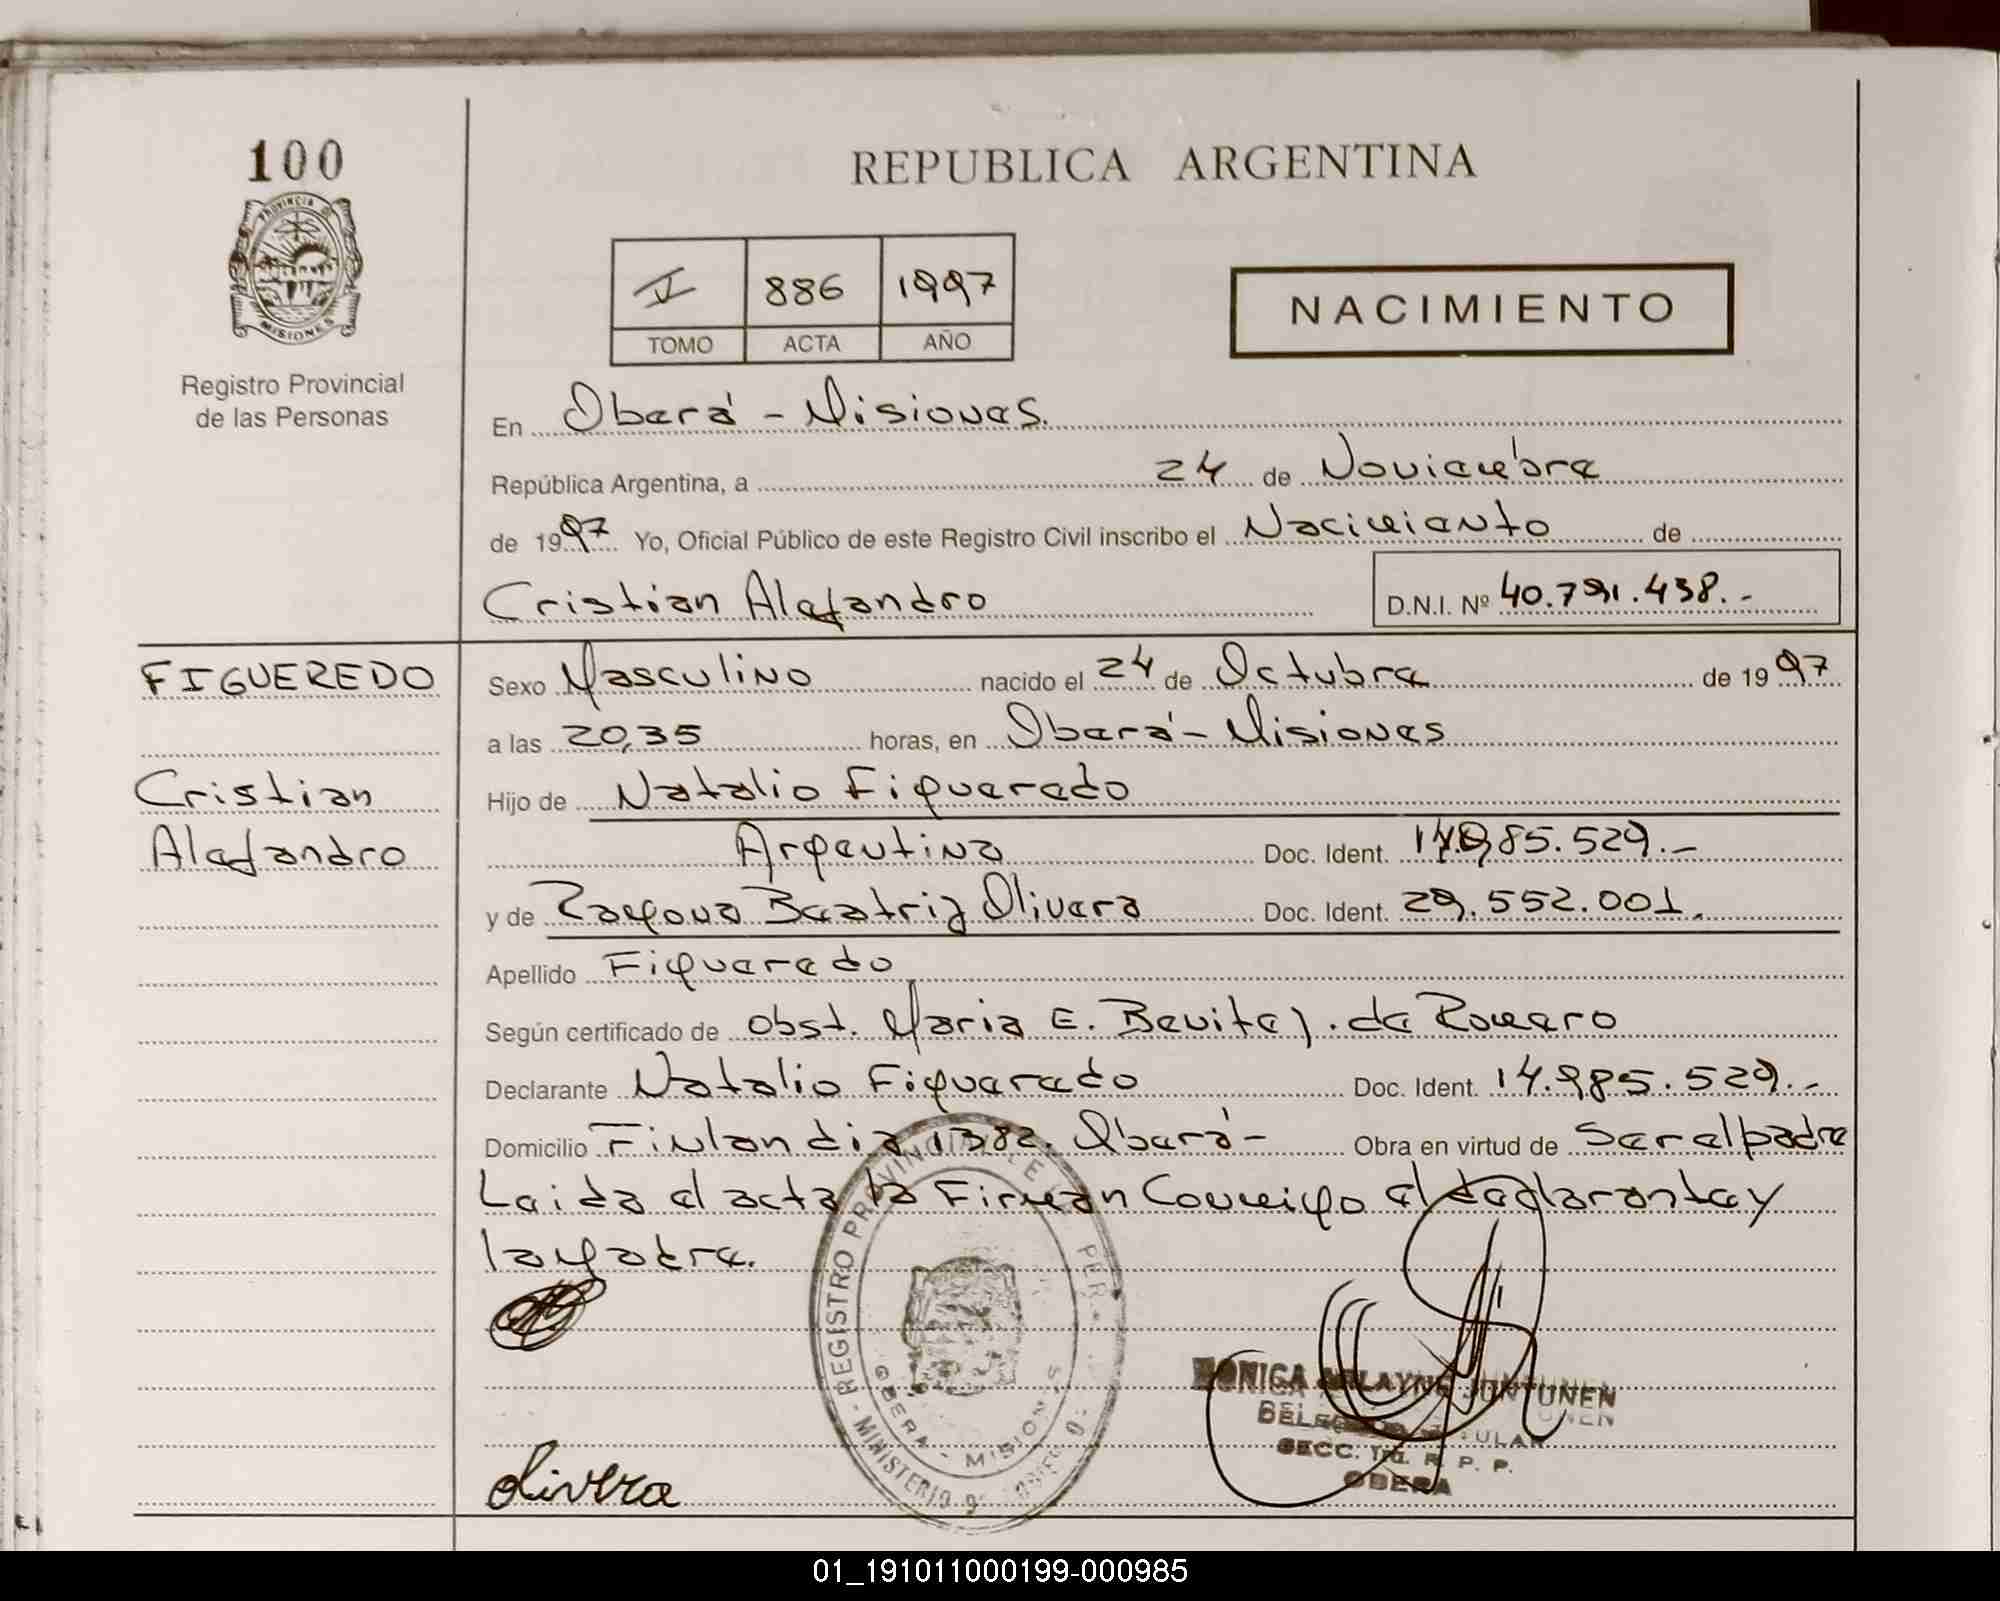 100
PROVINCIA D
MISIONES
Registro Provincial
de las Personas
REPUBLICA ARGENTINA
886 1997
TOMO ACTA AÑO
NACIMIENTO
En Oberá - Misiones.
República Argentina, a 24 de Noviembre
de 1997 Yo, Oficial Público de este Registro Civil inscribo el Nacimiento de
Cristian Alejandro D.N.I. Nº 40.791.438.-
FIGUEREDO
Cristian
Alejandro
Sexo Masculino nacido el 24 de Octubre de 1997
a las 20,35 horas, en Oberá - Misiones
Hijo de Natalio Figueredo
Argentina Doc. Ident. 85.529.-
y de Ramona Beatriz Olivera Doc. Ident. 29.552.001.
Apellido Figueredo
Según certificado de obst. Maria E. Benitez. de Romero
Declarante Natalio Figueredo Doc. Ident. 14.985.529.-
Domicilio Finlandia 1382. Oberá - Obra en virtud de Ser el padre
Leida el acta la Firman Conmigo el declarante y
la madre.
Olivera
REGISTRO PROVINCIAL DE PER.
OBERA - MISIONES
MINISTERIO D GOBIERNO
MONICA JUNTUNEN
TITULAR
SECC. R. P. P.
OBERA
01_191011000199-000985